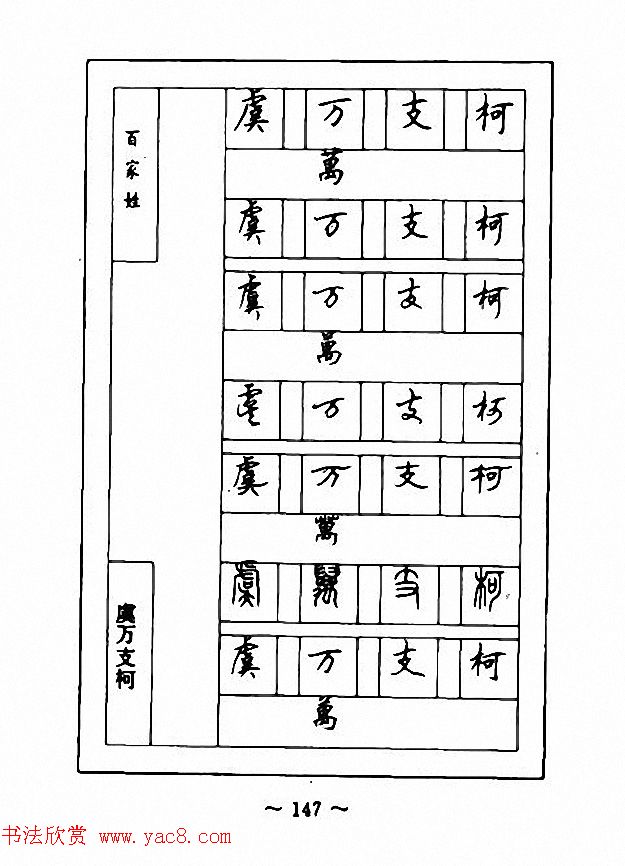 百家姓
虞万支柯
虞 万 支 柯
萬
虞 万 支 柯
虞 万 支 柯
萬
虞 万 支 柯
虞 万 支 柯
萬
虞 萬 支 柯
虞 万 支 柯
萬
～ 147 ～
书法欣赏 www.yac8.com